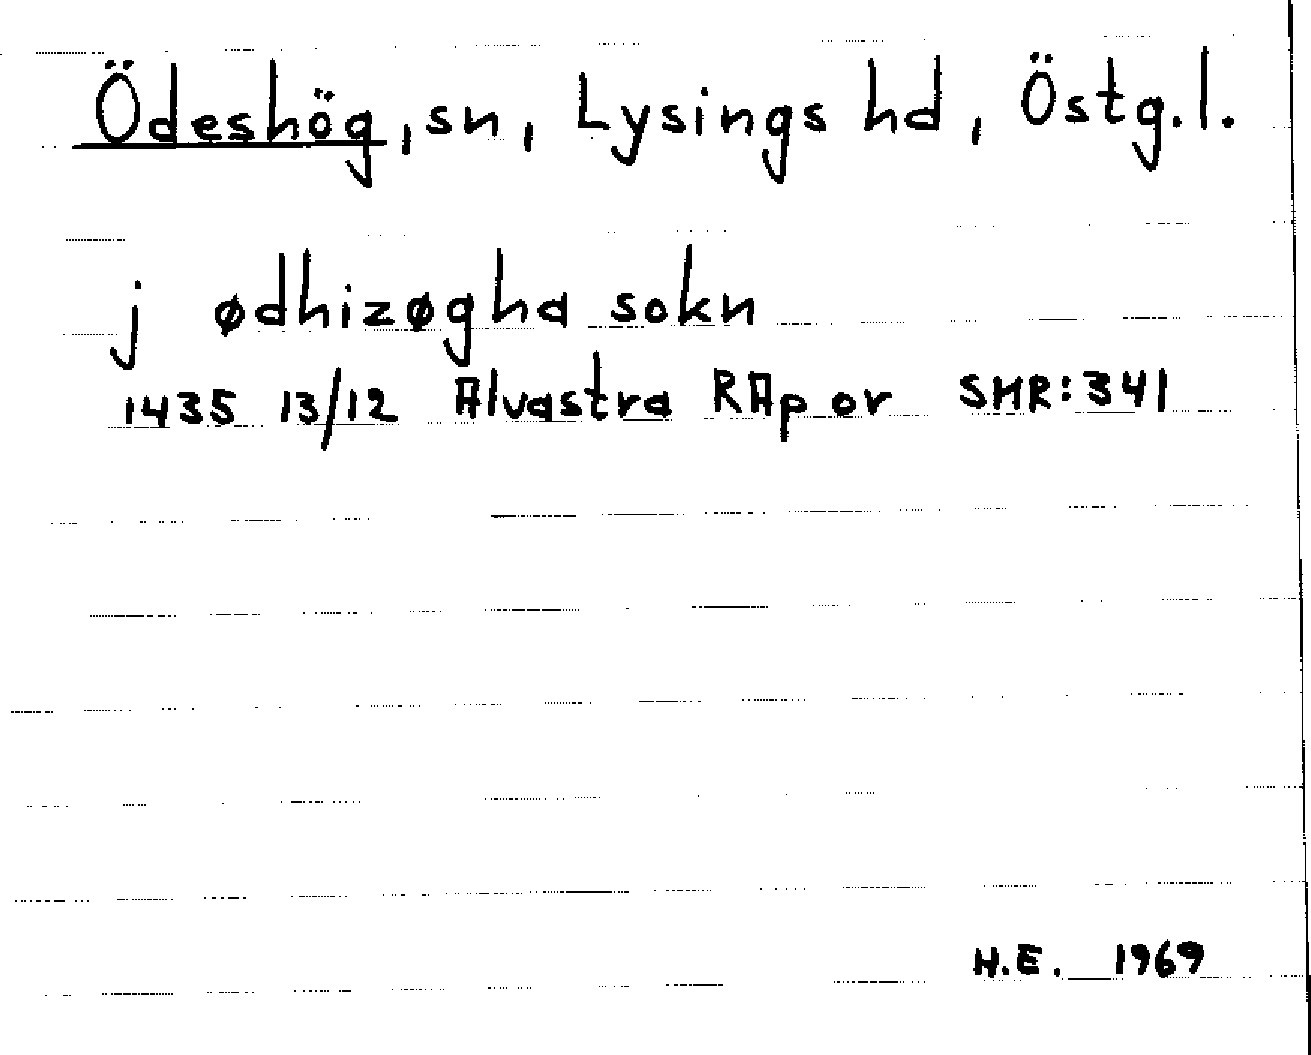 Ödeshög, sn, Lysings hd, Östg.l.
j ødhizøgha sokn
1435 13/12 Alvastra RAp or SMR:341
H.E. 1969